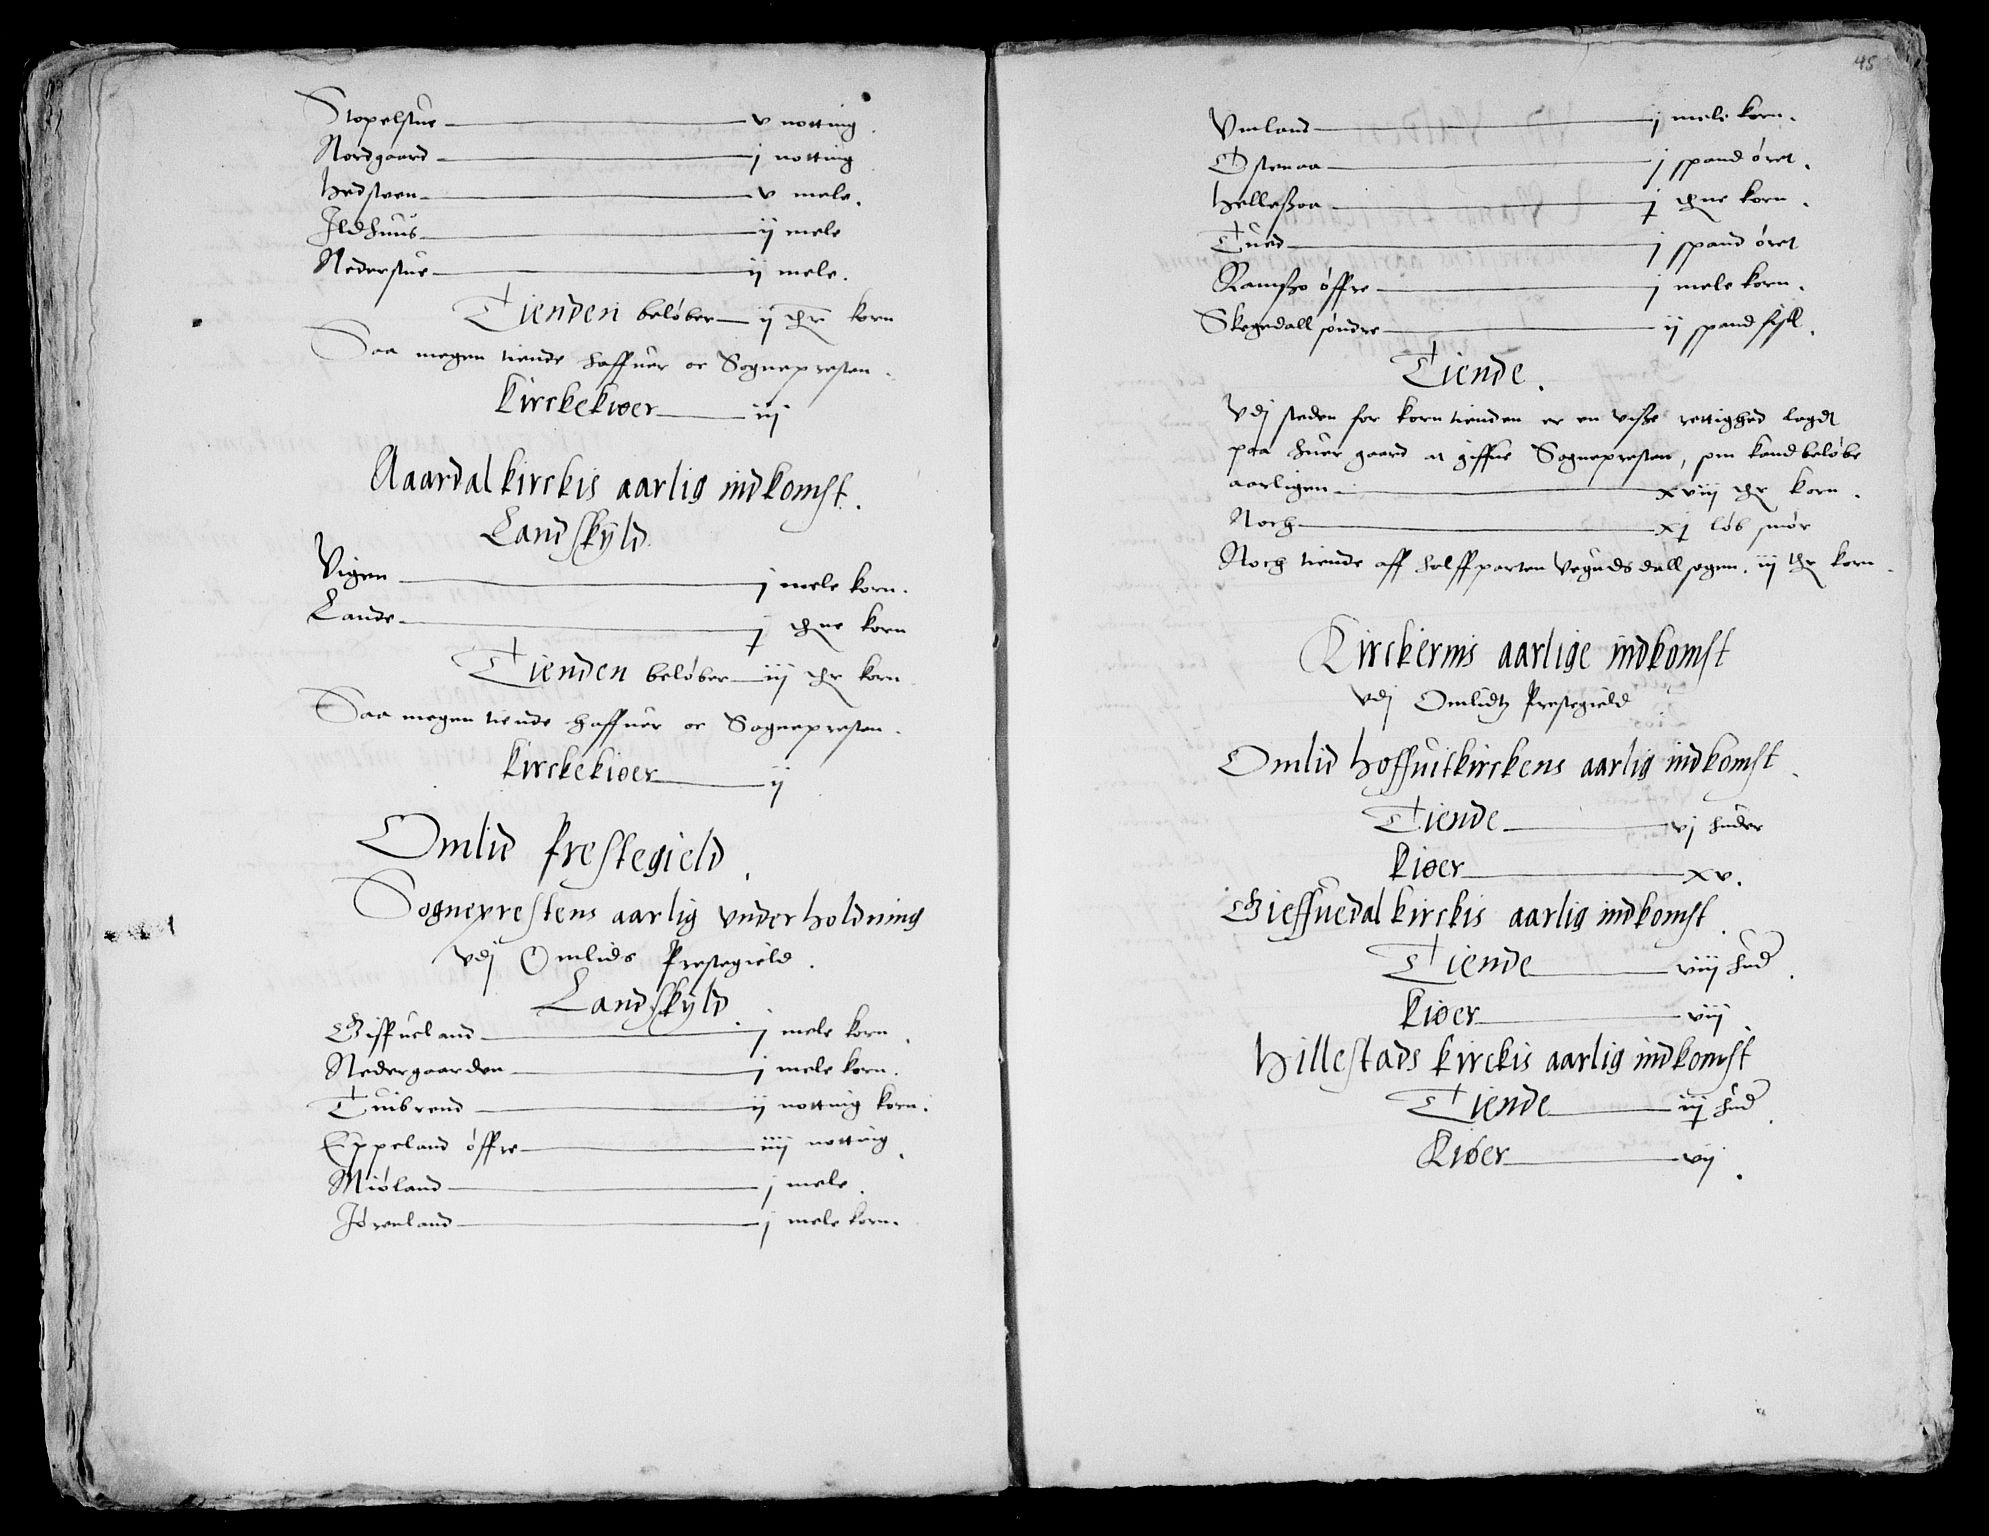 Stopelstue v notting.
Nordgaard j notting
Hedsteen v mele.
Ildhuus ij mele
Nederstue ij mele.
Tienden beløber ij thr korn
Saa megen tiende haffuer oc Sognepresten.
Kirckekiøer iij
Aaardal kirckis aarlig indkomst.
Landskyld
Vigen j mele korn.
Lande j thne korn
Tienden beløber iij thr korn
Saa megen tiende haffuer oc Sognepresten.
Kirckekiøer ij
Omlid Prestegield.
Sogneprestens aarlig vnderholdning
vdj Omlids Prestegield.
Landskyld.
Giffueland j mele korn.
Nedergaarden j mele korn.
Tuibrend ij notting korn.
Eppeland øffre iiij notting.
Miøland j mele.
Jørenland j mele korn.
45
Vmland j mele korn.
Ostenaa j spand øret.
Helleßoa j thne korn.
Tued j spand øret
Ramßo øffre j mele korn.
Skegedall søndre ij spand fisk.
Tiende.
Vdj steden for korn tienden er en viße rettighed lagdt
paa huer gaard at giffue Sognepresten, som kand beløbe
aarligen xviij thr korn.
Noch xj løb smør
Noch tiende aff halffparten Vegudsdall sogen. iij thr korn.
Kirckernis aarlige indkomst
vdj Omlidtz Prestegield
Omlid hoffuitkirckens aarlig indkomst.
Tiende vj huder
Kiøer xv.
Gieffuedal kirckis aarlig indkomst.
Tiende viij hud.
Kiøer viij
Hillestads kirckis aarlig indkomst
Tiende iij hud.
Kiøer vij.